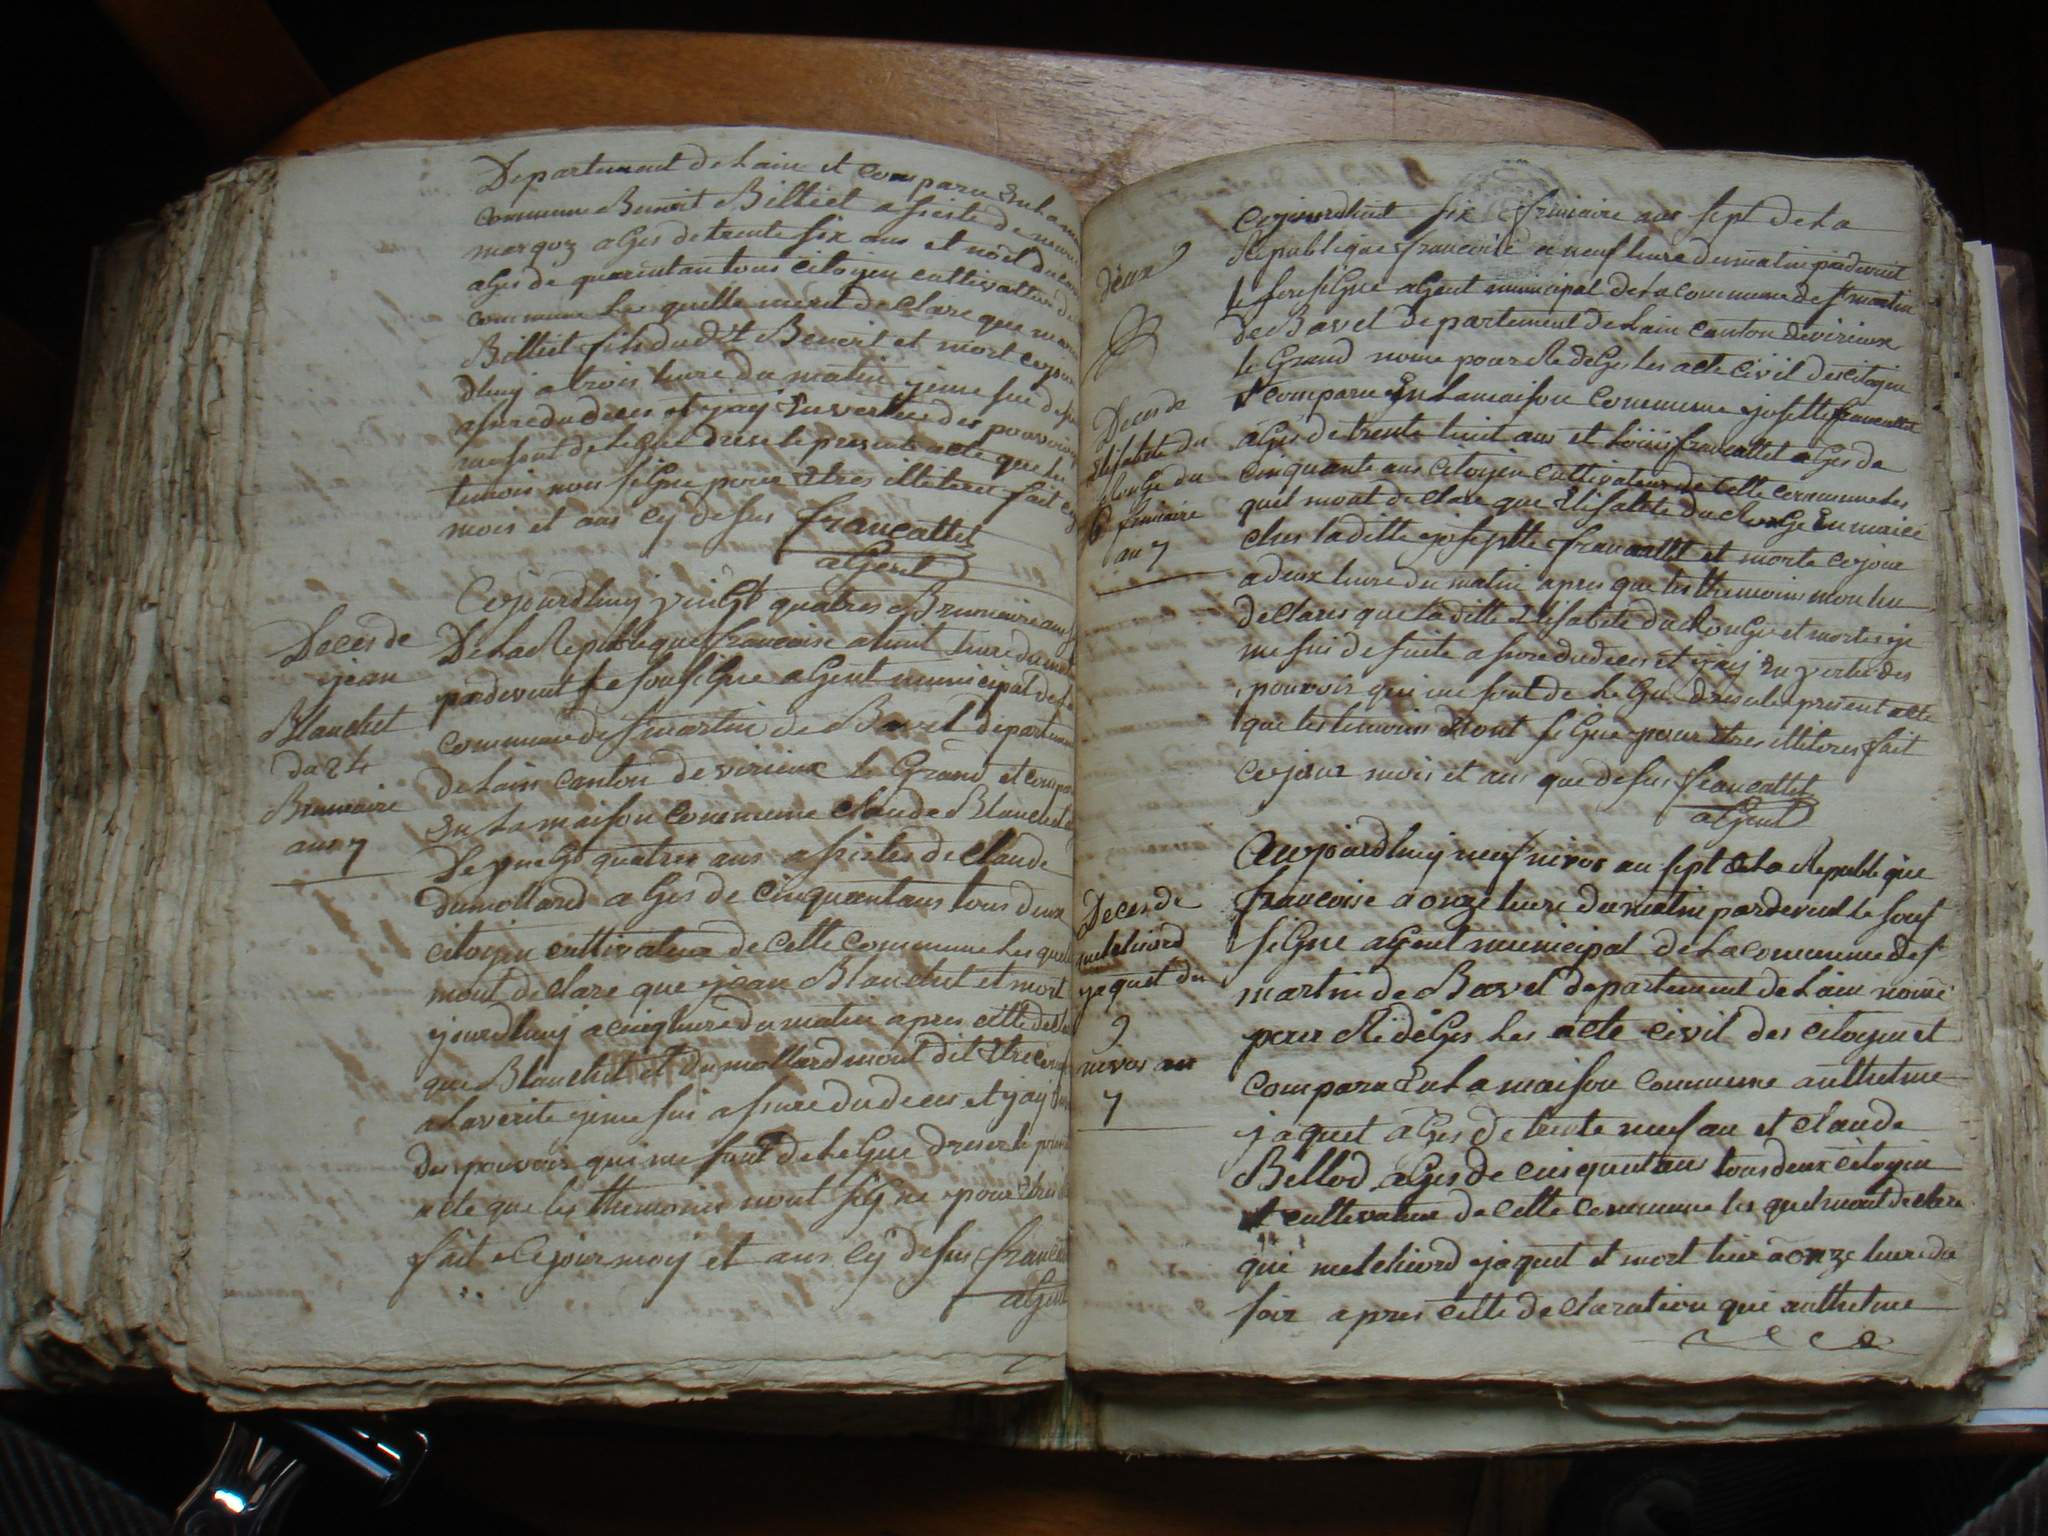 Departement de Lain et comparu En La
commune Benoit Billiet assisté de
margoz ages de trente six ans et noel
ages de quarentan tous citoyen cultivatteur
commune les quelle mont de clare que
Billiet fils dudt Benoit et mort cejour
dhuy a trois heure du matin je me sui de
assure du deces et jay En vertue des pouvoirs
me sont de legue drese le present acte que les
temoin non signe pour Etres illiteres fait
mois et ans cy desus francallet
agent
Cejourdhuy vingt quatres Brumaire ans
Deces de
jean
Blanchet
du 24
Brumaire
ans 7
De La Republique francoise a huit heure du
pardevent Le sousigne agent municipal de
commune de st martin de Bavel departement
de Lain canton de virieux Le Grand et
En La maison commune claude Blanchet
De vingt quatres ans assistes de claude
dumollard ages de cinquantans tous deux
citoyen cultivateur de cette commune les quel
mont de clare que jean Blanchet et mort
jourdhuy a cinq heure du matin apres cette
que Blanchet et Dumollard mont dit Etre
a La verite je me sui assure du deces et jay
Des pouvoir qui me sont de Legue dreser le
acte que les themoins nont signe pour
fait cejour moy et ans cy desus
agent
Cejourdhuit six frimaire ans sept de La
deux
Republique francoise a neuf heure du matin pardevent
le sousigne agent municipal de La commune de st martin
de Bavel departement de Lain canton de virieux
le Grand nome pour Redeges les acte civil des citoyen
Deces de
Elisabete du
chonge du
6 frimaire
an 7
et comparu En La maison commune josette francallet
ages de trente huit ans et Louis francallet ages de
cinquante ans citoyen cultivateur de cette commune les
quel mont de clare que Elisabete duchonge En
ches La ditte josephte francallet et morte cejour
a deux heure du matin apres que les themoins mon
de clares que La ditte Elisabete duchonge et morte je
me sui de suite assure du deces et jay En vertu des
pouvoir qui me sont de Legue drese le present acte
que les temoins nont signe pour Etres illiteres fait
cejour mois et ans que desus francallet
agent
Aujourdhuy neuf nivos an sept de La Republique
Deces de
melchiord
jaquet du
9
nivos an
7
francoise a onze heure du matin pardevent le sous
signe agent municipal de La commune de st
martin de Bavel departement de Lain nome
pour Redeges Les acte civil des citoyen et
comparu En La maison commune anthelme
jaquet ages de trente neuf an et claude
Bellod ages de cinquentans tous deux citoyen
et cultivateur de cette commune les quel mont de clare
que melchiord jaquet et mort hier a onze heure du
soir apres cette de claration que anthelme